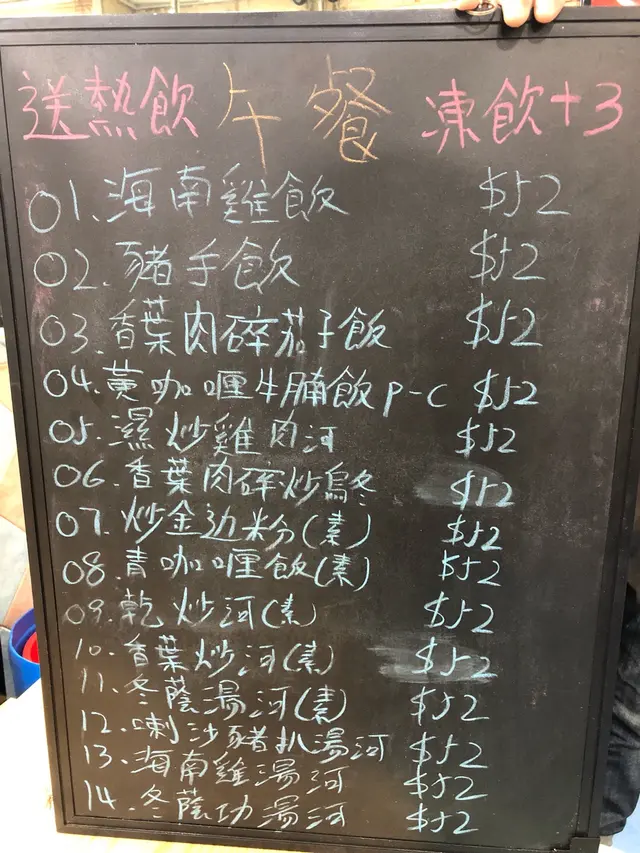 送熱飲 午餐 凍飲+3
01. 海南雞飯 $52
02. 豬手飯 $52
03. 香葉肉碎茄子飯 $52
04. 黄咖喱牛腩飯 P-C $52
05. 濕炒雞肉河 $52
06. 香葉肉碎炒烏冬 $52
07. 炒金边粉(素) $52
08. 青咖喱飯(素) $52
09. 乾炒河(素) $52
10. 香葉炒河(素) $52
11. 冬蔭湯河(素) $52
12. 喇沙豬扒湯河 $52
13. 海南雞湯河 $52
14. 冬蔭功湯河 $52